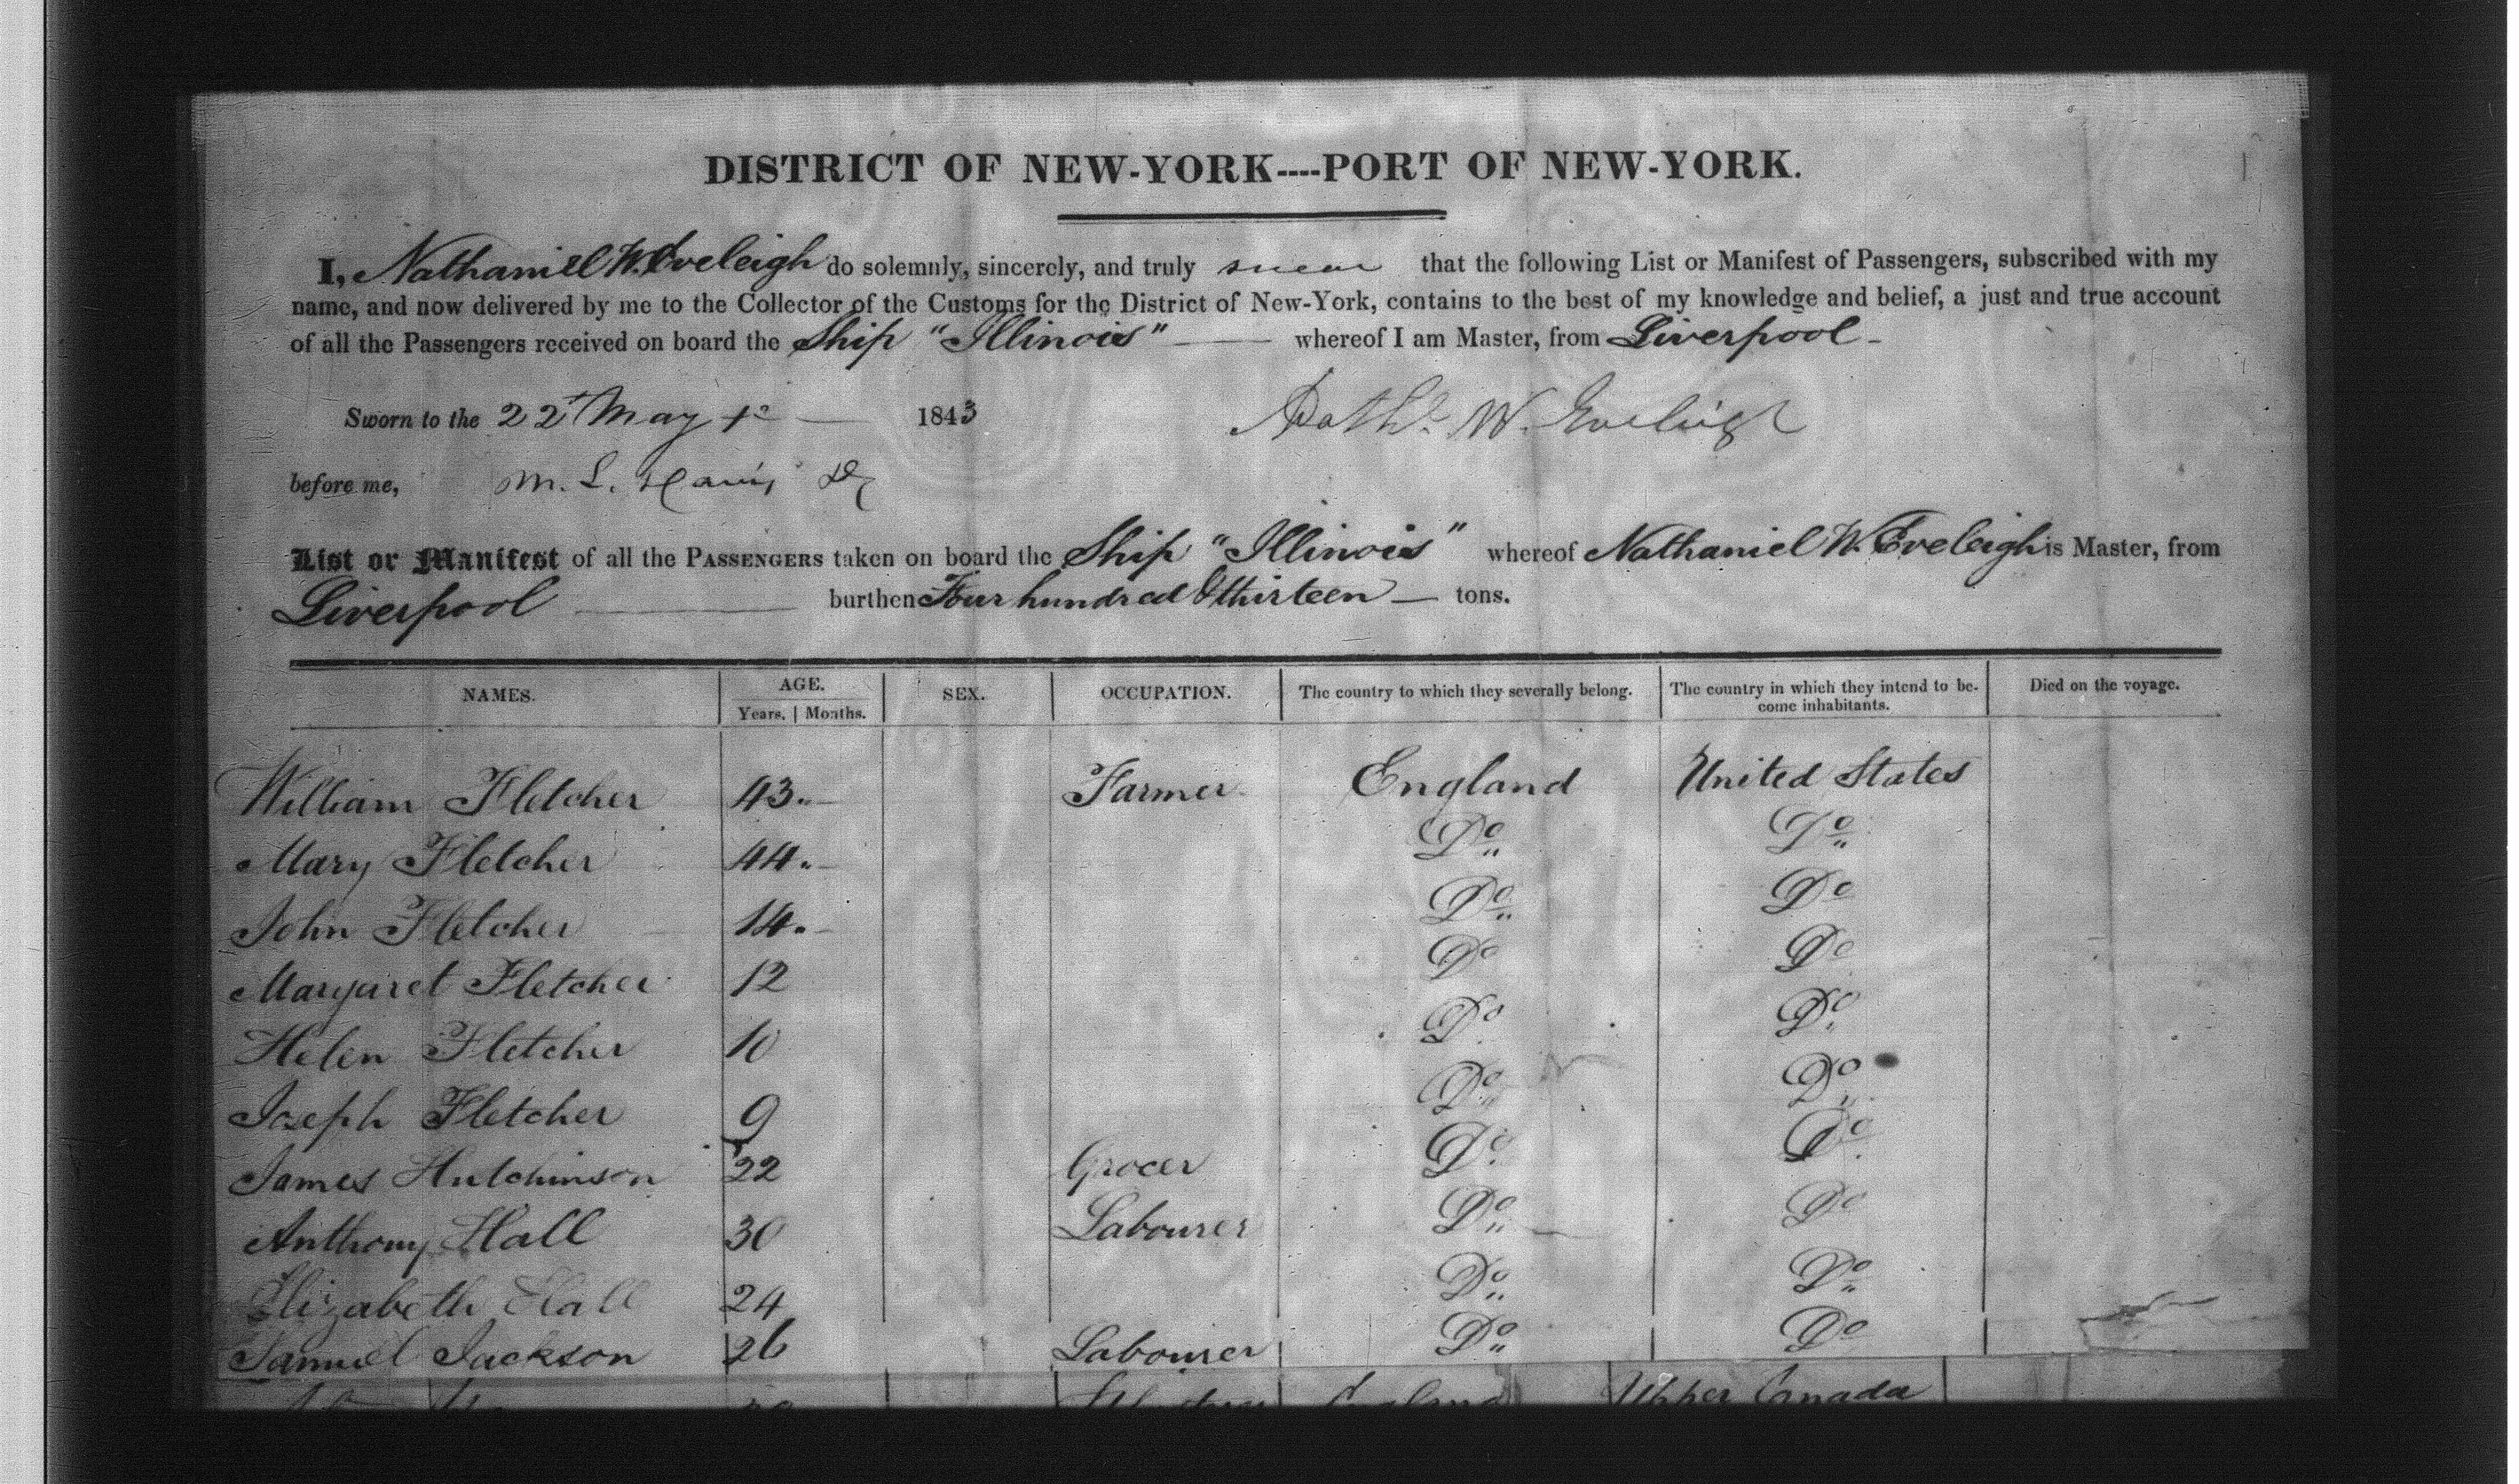 DISTRICT OF NEW-YORK----PORT OF NEW-YORK.
I, Nathaniel W. Eveleigh do solemnly, sincerely, and truly swear that the following List or Manifest of Passengers, subscribed with my
name, and now delivered by me to the Collector of the Customs for the District of New-York, contains to the best of my knowledge and belief, a just and true account
of all the Passengers received on board the Ship "Illinois" whereof I am Master, from Liverpool -
Sworn to the 22d May 1843
Nathl. W. Eveleigh
before me, M. L. Davis
List or Manifest of all the PASSENGERS taken on board the Ship "Illinois" whereof Nathaniel W. Eveleigh is Master, from
Liverpool burthen Four hundred & thirteen — tons.
NAMES. AGE. SEX. OCCUPATION. The country to which they severally belong. The country in which they intend to be- Died on the voyage.
Years. Months. come inhabitants.
William Fletcher 43 Farmer England United States
Mary Fletcher 44 Do Do
John Fletcher 14 Do Do
Margaret Fletcher 12 Do Do
Helen Fletcher 10 Do Do
Joseph Fletcher 9 Do Do
James Hutchinson 22 Grocer Do Do
Anthony Hall 30 Labourer Do Do
Elizabeth Hall 24 Do Do
Samuel Jackson 26 Labourer Do Do
England Upper Canada